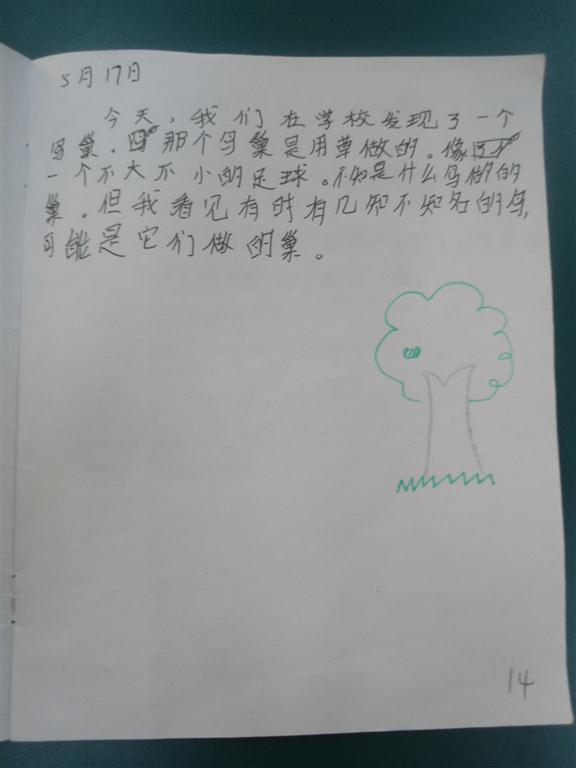 5月17日
今天，我们在学校发现了一个
鸟巢。那个鸟巢是用草做的。像
一个不大不小的足球。不知是什么鸟做的
巢。但我看见有时有几知不知名的鸟，
可能是它们做的巢。
14